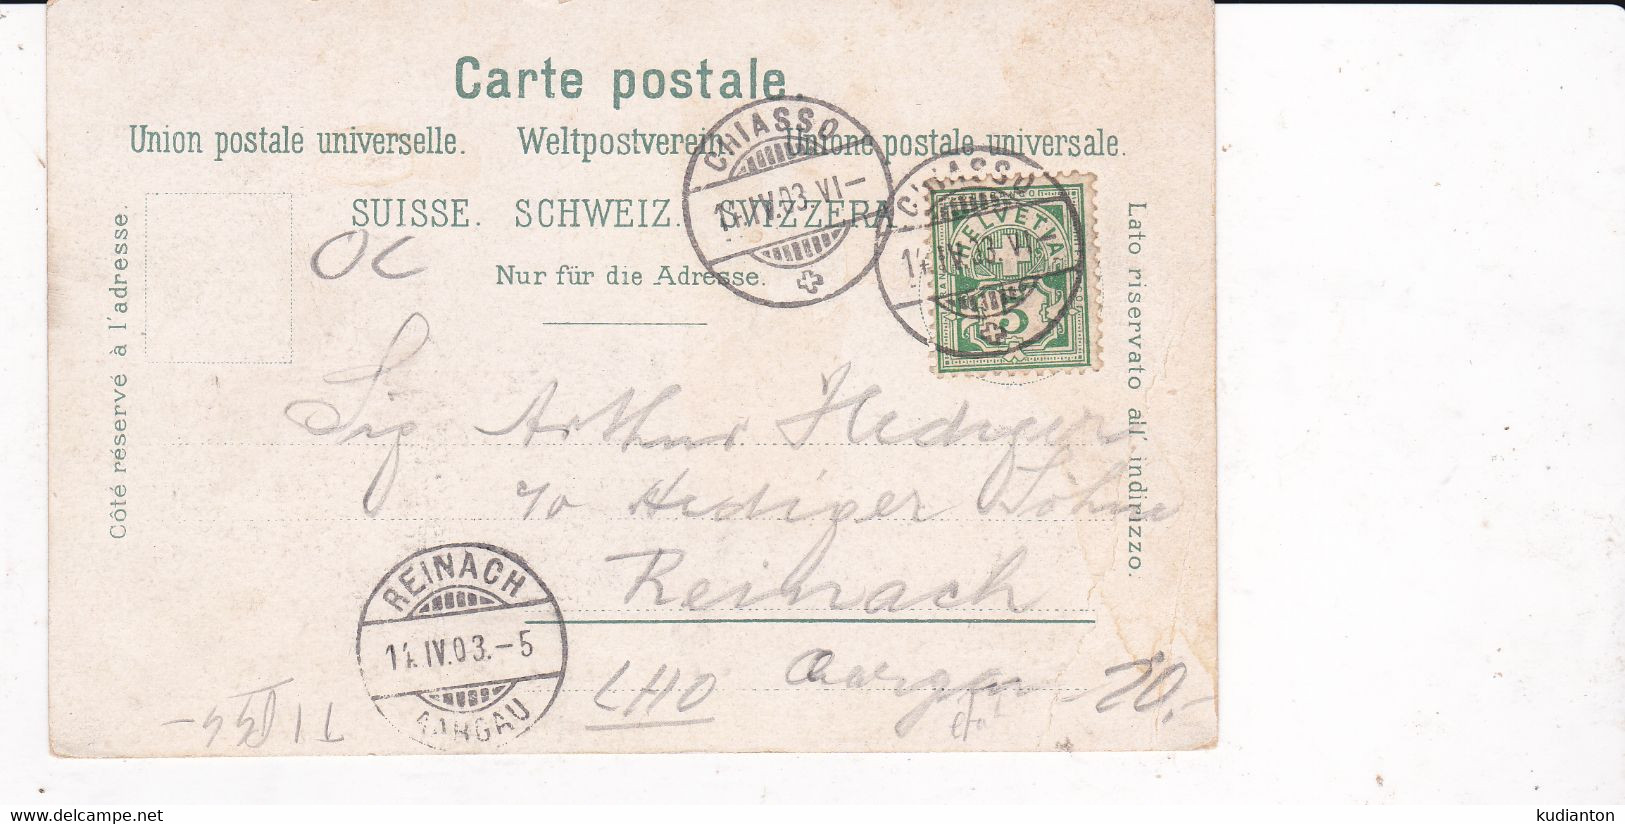 Carte postale.
Union postale universelle. Weltpostverein. Unione postale universale.
SUISSE. SCHWEIZ. SVIZZERA.
Nur für die Adresse.
Côté réservé à l'adresse.
Lato riservato all' indirizzo.
CHIASSO
14.IV.03.VI-
CHIASSO
14.IV.03.VI-
HELVETIA
5
OC
Sig Arthur Hediger
c/o Hediger Söhne
Reinach
Aargau
REINACH
14.IV.03.-5
AARGAU
LHO
20.-
kudianton